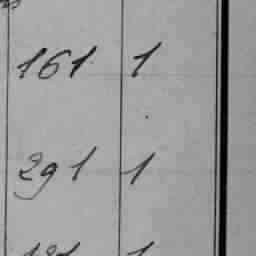 161 1
291 1